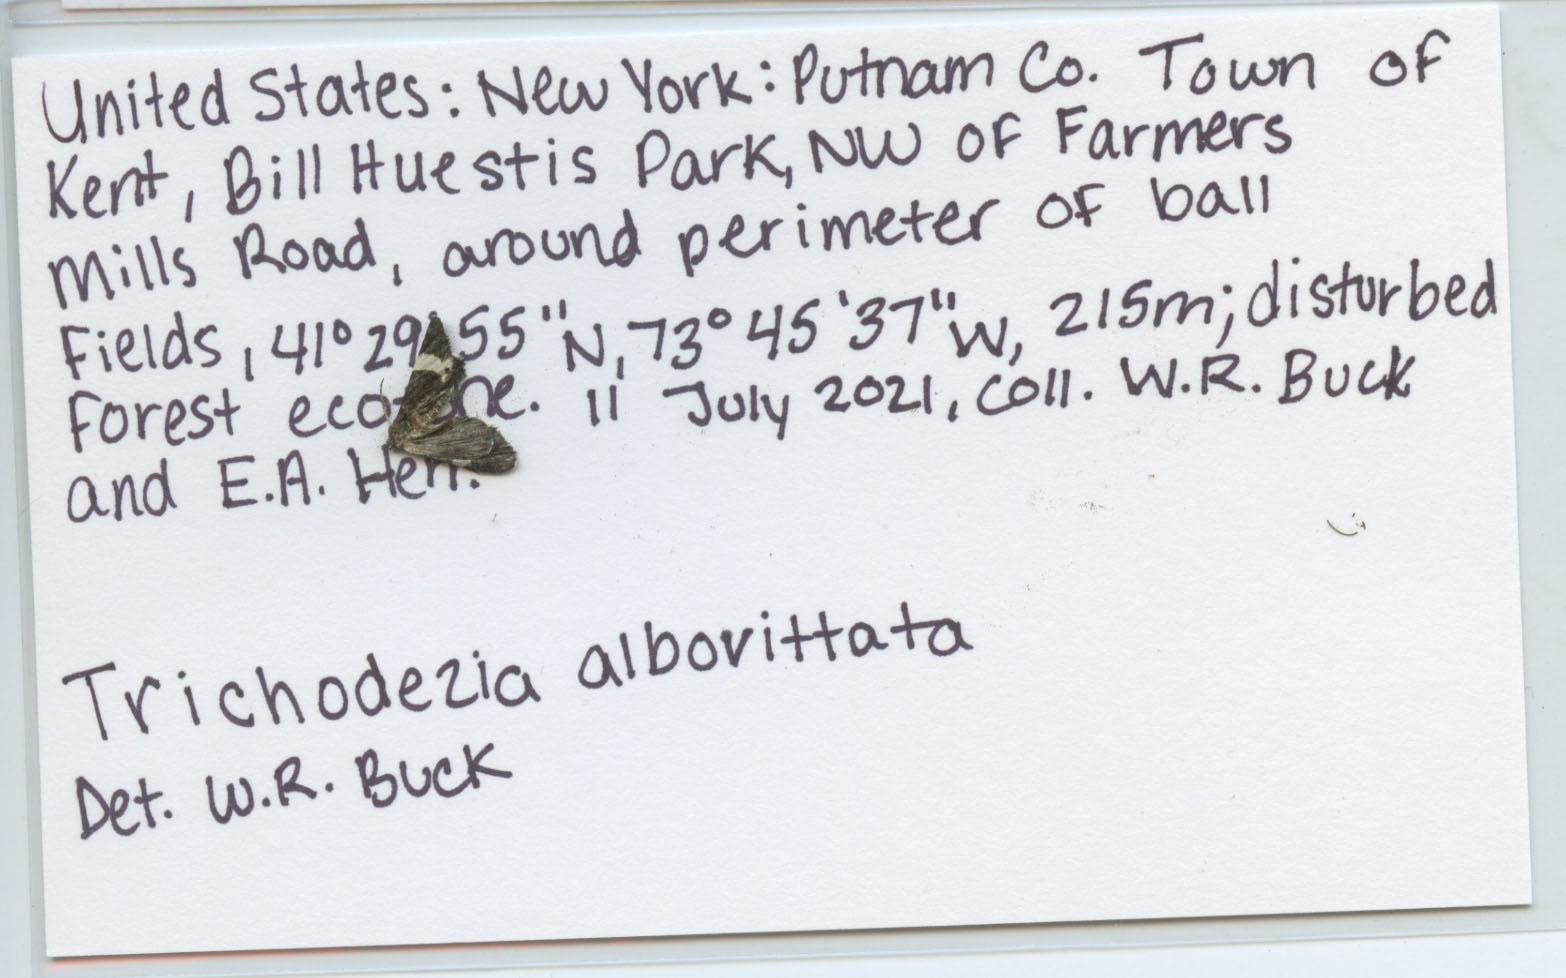 United States: New York: Putnam Co. Town of
Kent, Bill Huestis Park, NW of Farmers
Mills Road, around perimeter of ball
Fields, 41° 29 55"N, 73° 45'37"W, 215m; disturbed
Forest . 11 July 2021, coll. W.R. Buck
and E.A.
Trichodezia albovittata
Det. W.R. Buck